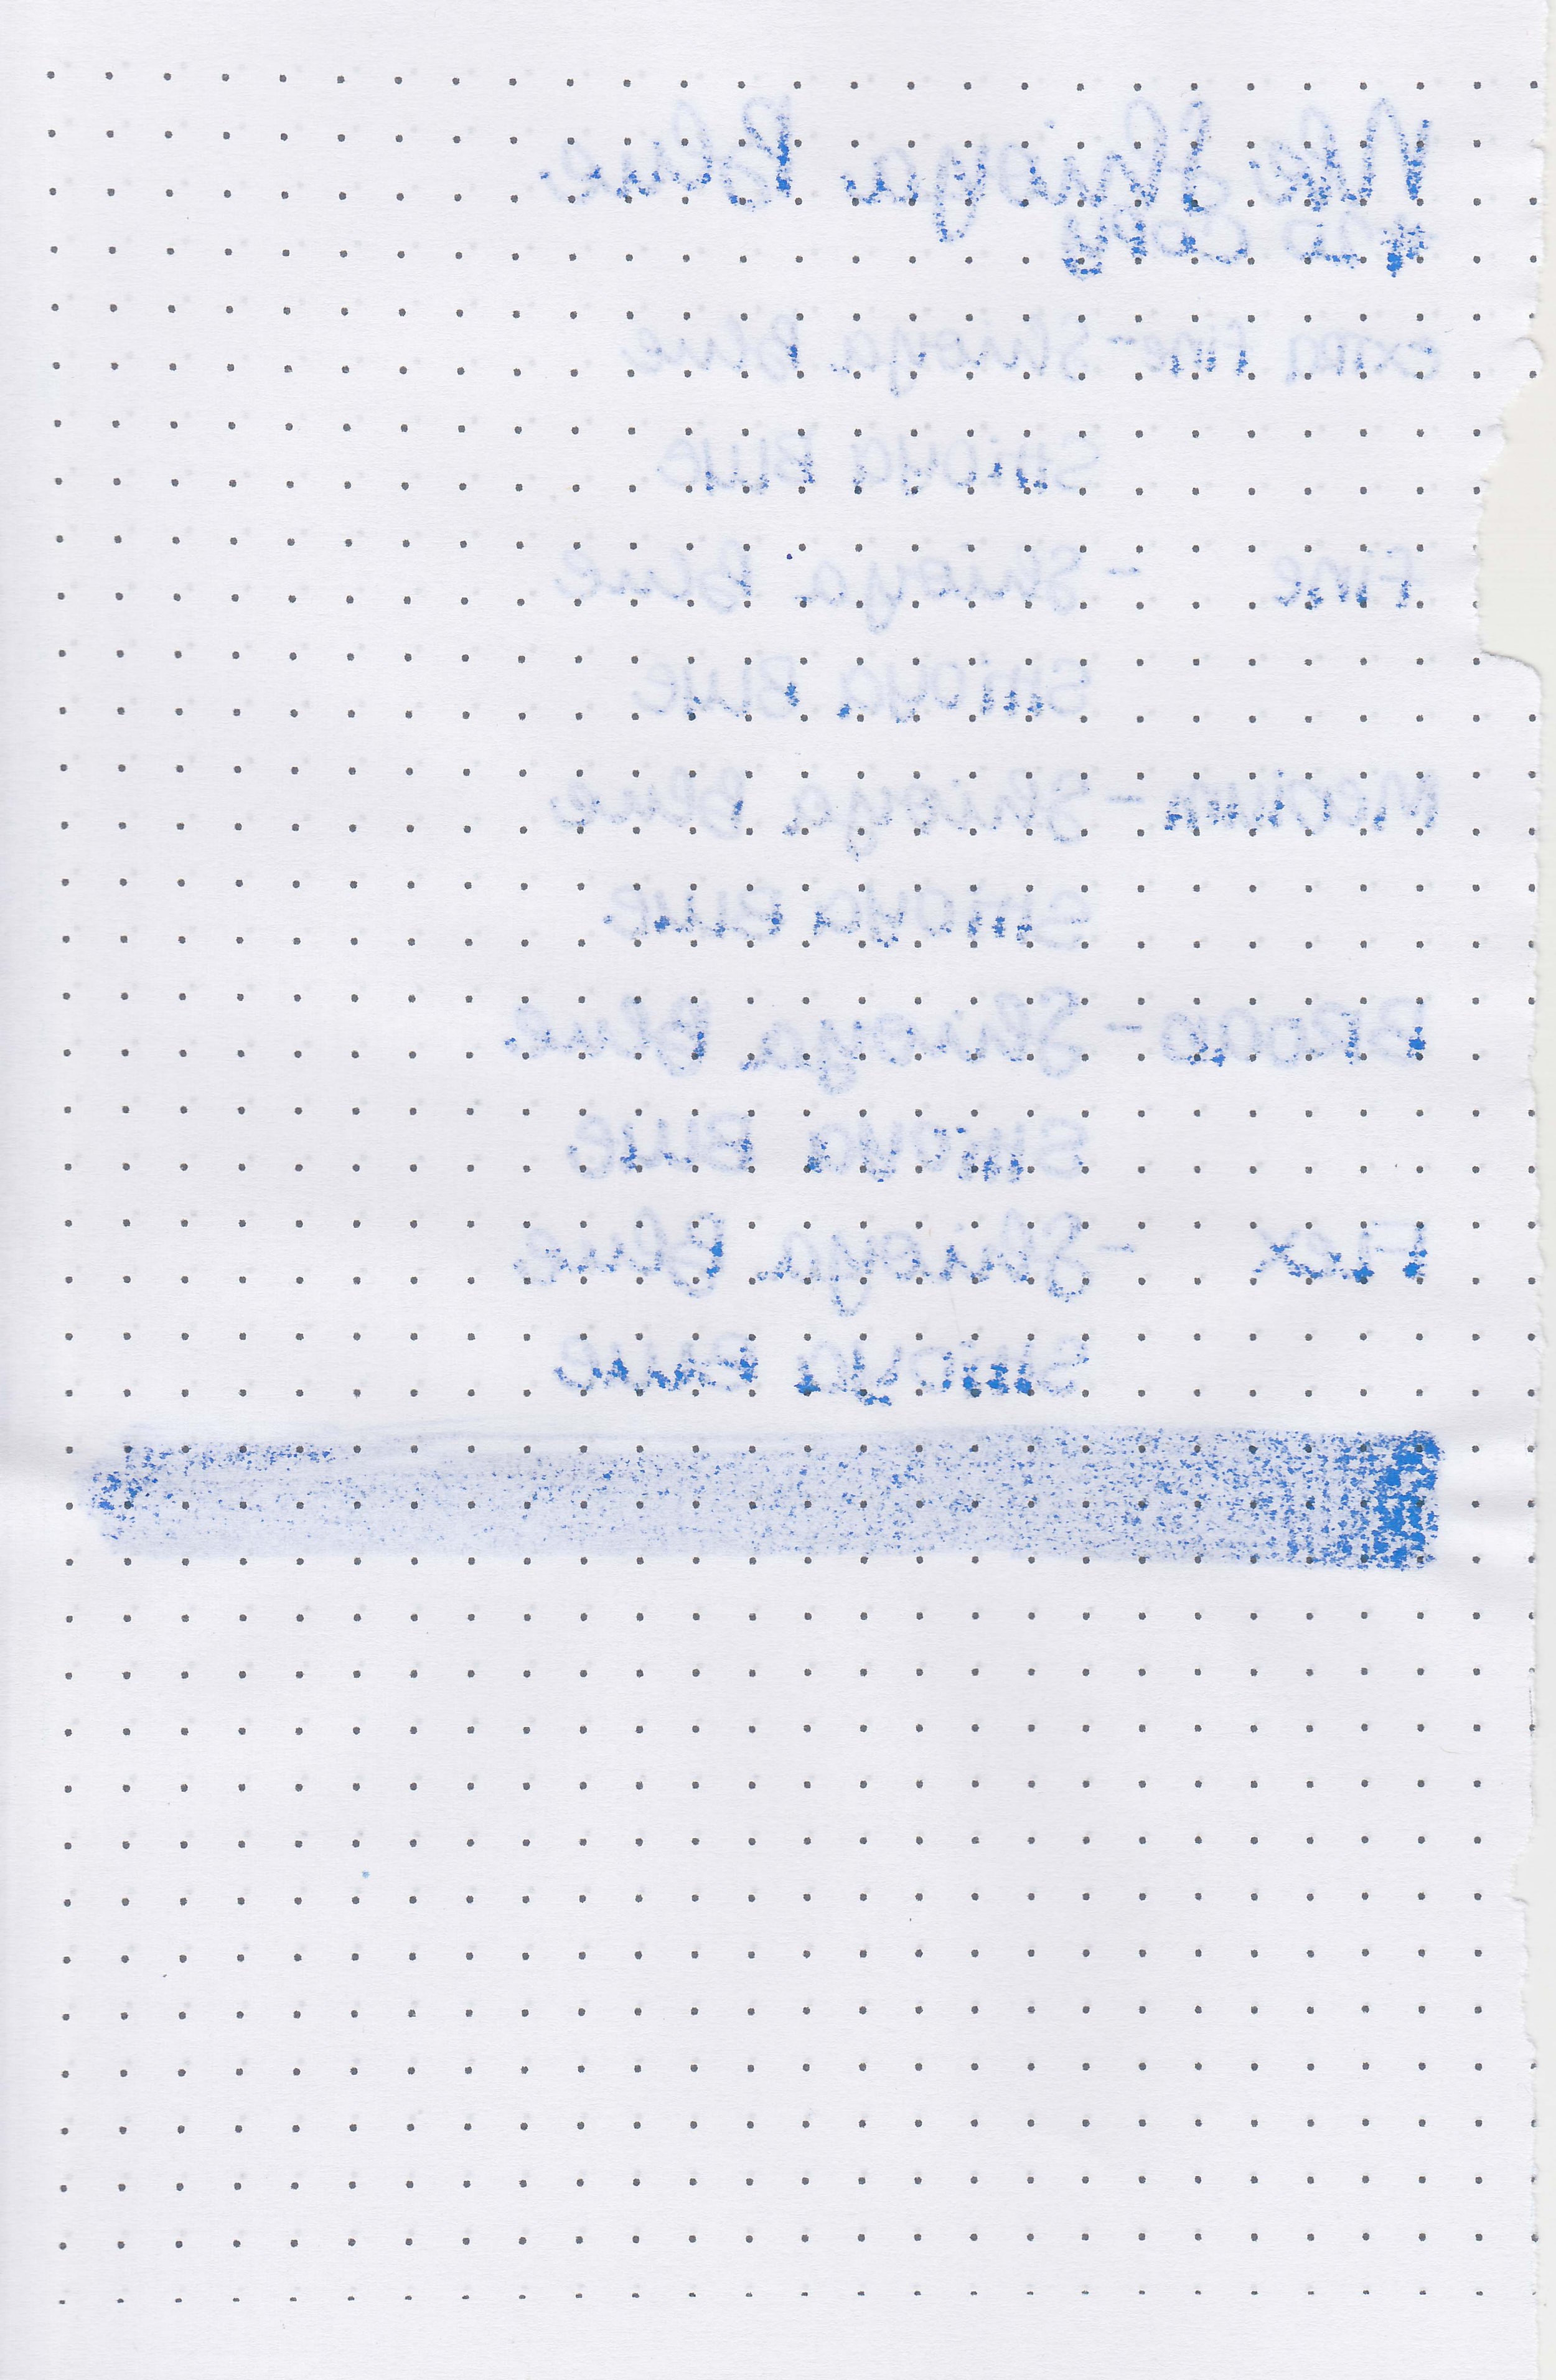 Shioya Blue
#20 Copy
Extra Fine - Shioya Blue
Shioya Blue
Fine - Shioya Blue
Shioya Blue
Medium - Shioya Blue
Shioya Blue
Broad - Shioya Blue
Shioya Blue
Flex - Shioya Blue
Shioya Blue